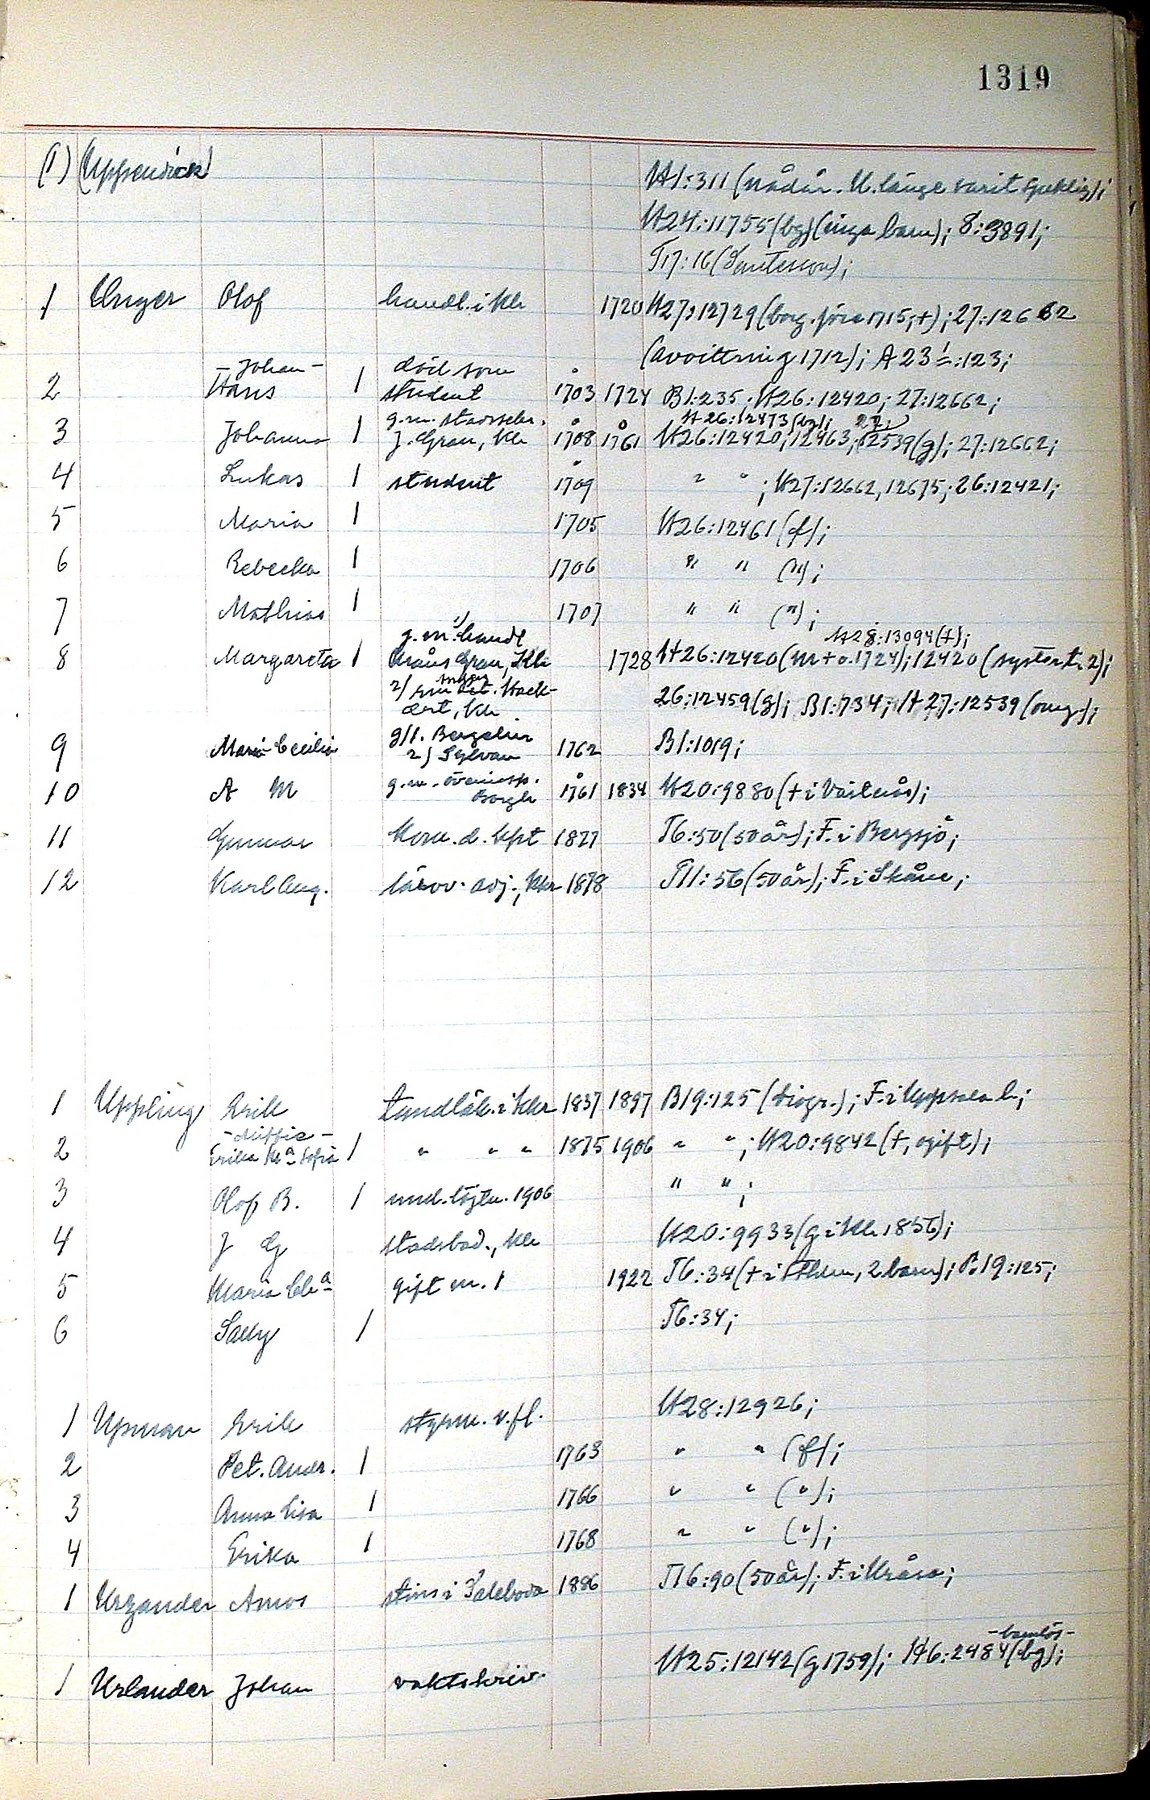 1319
(1) (Uppendick) H1:311 (nådår. U. länge varit sjuklig);
H24:11755 (bg) (inga barn); 8:3891;
T17:16 (Santesson);
1 Unger Olof handl. i Kr 1720 H27:12729 (borg. före 1715, +); 27:12662
(avvittring 1712); A23:123;
2 Johan- Hans 1 död som student 1703 1724 B1:235; H26:12420; 27:12662;
H26:12473 (bg);
3 Johanna 1 g.m. J. Grau, Kr 1708 1761 H26:12420; 12463; 27:12539 (g); 27:12662;
4 Lukas 1 student 1709 " " ; H27:12662, 12675; 26:12421;
5 Maria 1 1705 H26:12461 (f);
6 Rebecka 1 1706 " " (");
7 Mathias 1 1707 " " (");
H28:13094 (+);
8 Margareta 1 g.m. 1) handl Måns Grau, Kr 1728 H26:12420 (m + o. 1724); 12420 (syster t. 2);
2) Kr 26:12459 (g); B1:734; H27:12539 (omg.);
9 Maria Cecilia g 1. Bergelin 2) Sylvan 1762 B1:1019;
10 A M g.m. Borgh 1761 1834 H20:9880 (+ i Västerås);
11 Gunnar 1877 T6:50 (50 år); F. i Bergsjö;
12 Karl Aug. lärov. adj., Kkr 1878 T11:56 (50 år); F. i Skåne;
1 Uppling Erik tandläk. i Kkr 1837 1897 B19:125 (biogr.); F. i Uppsala l.;
2 Erika Ma Sofia 1 " " " 1875 1906 " " ; H20:9842 (+, ogift);
3 Olof B. 1 und. löjtn. 1906 " " ;
4 J G stadsbad., Kr H20:9933 (g i Kr 1856);
5 Maria Cha gift m. 1 1922 T6:34 (+ i Sthlm, 2 barn); B19:125;
6 Sally 1 T6:34;
1 Upman Erik styrm. v. fl. H28:12926;
2 Pet. Andr. 1 1763 " " (f);
3 Anna Lisa 1 1766 " " (");
4 Erika 1 1768 " " (");
1 Urzander Amos stins i 1886 T16:90 (50 år); F. i Uråsa;
1 Urlander Johan vaktskriv. H25:12142 (g 1759); H6:2484 (bg) -barnlös-;